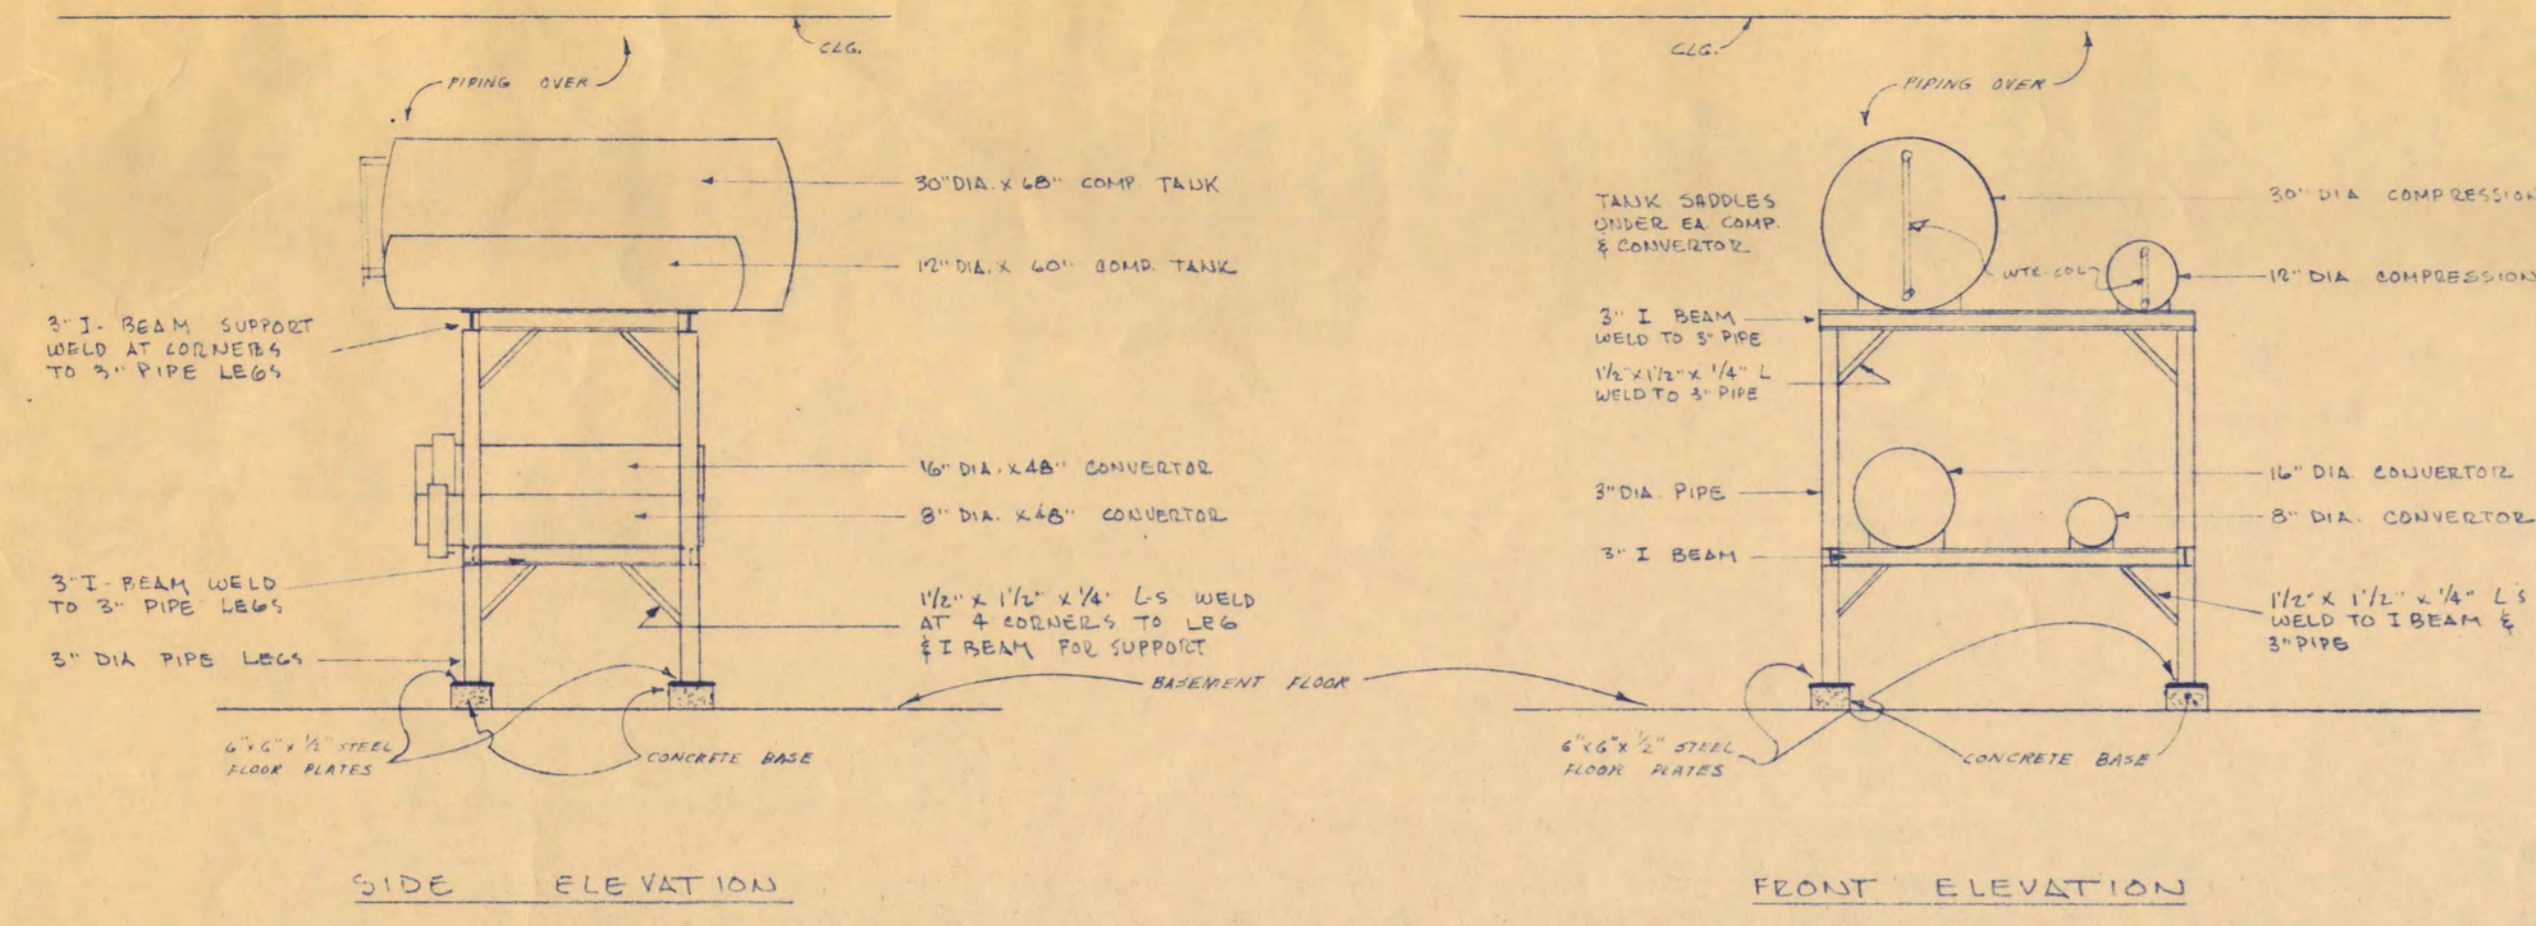 CLG.
PIPING OVER
30" DIA. X 68" COMP. TANK
12" DIA. X 60" COMP. TANK
3" I-BEAM SUPPORT
WELD AT CORNERS
TO 3" PIPE LEGS
16" DIA. X 48" CONVERTOR
8" DIA. X 48" CONVERTOR
3" I-BEAM WELD
TO 3" PIPE LEGS
1 1/2" X 1 1/2" X 1/4" L-S WELD
AT 4 CORNERS TO LEG
& I BEAM FOR SUPPORT
3" DIA PIPE LEGS
BASEMENT FLOOR
6" x 6" x 1/2" STEEL
FLOOR PLATES
CONCRETE BASE
SIDE ELEVATION
CLG.
PIPING OVER
TANK SADDLES
UNDER EA. COMP.
& CONVERTOR
30" DIA COMPRESSION
WTR. COL
12" DIA COMPRESSION
3" I BEAM
WELD TO 3" PIPE
1 1/2" X 1 1/2" X 1/4" L
WELD TO 3" PIPE
3" DIA. PIPE
16" DIA. CONVERTOR
8" DIA. CONVERTOR
3" I BEAM
1 1/2" X 1 1/2" X 1/4" L'S
WELD TO I BEAM &
3" PIPE
6" x 6" x 1/2" STEEL
FLOOR PLATES
CONCRETE BASE
FRONT ELEVATION